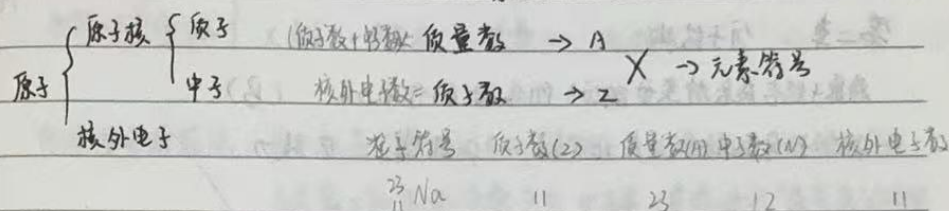 原子 原子核 质子 中子 核外电子
(质子数+中子数) 质量数 → A
核外电子数=质子数 → Z
X → 元素符号
元素符号 质子数(Z) 质量数(A) 中子数(N) 核外电子数
²³₁₁Na 11 23 12 11